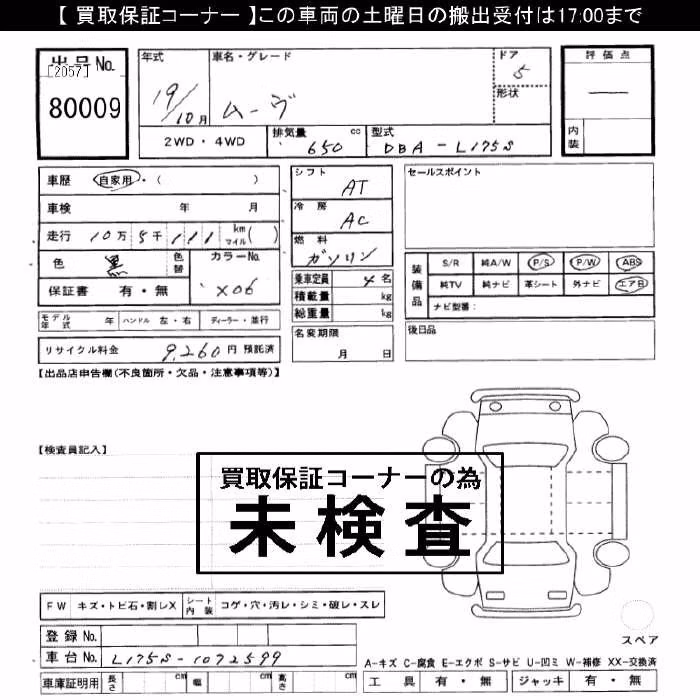 【 買取保証コーナー 】この車両の土曜日の搬出受付は17:00まで
出品No.
[2057]
80009
年式
19/10月
車名・グレード
ムーヴ
ドア
5
形状
評価点
内装
2WD・4WD
排気量 650 cc
型式 DBA-L175S
車歴 自家用・( )
車検 年 月
走行 10万5千111 km マイル( )
色 黒 色替
カラーNo. X06
保証書 有・無
シフト AT
冷房 AC
燃料 ガソリン
乗車定員 4名
積載量 kg
総重量 kg
名変期限
月 日
セールスポイント
装備品
S/R 純A/W P/S P/W ABS
純TV 純ナビ 革シート 外ナビ エアB
ナビ型番:
後日品
モデル年式 年 ハンドル 左・右 ディーラー・並行
リサイクル料金 9,260円 預託済
【出品店申告欄(不良箇所・欠品・注意事項等)】
【検査員記入】
買取保証コーナーの為
未検査
FW キズ・トビ石・割レX シート内装 コゲ・穴・汚レ・シミ・破レ・スレ
スペア
登録No.
車台No. L175S-1072599
車庫証明用 長さ cm 幅 cm 高さ cm
A-キズ C-腐食 E-エクボ S-サビ U-凹ミ W-補修 XX-交換済
工具 有・無 ジャッキ 有・無